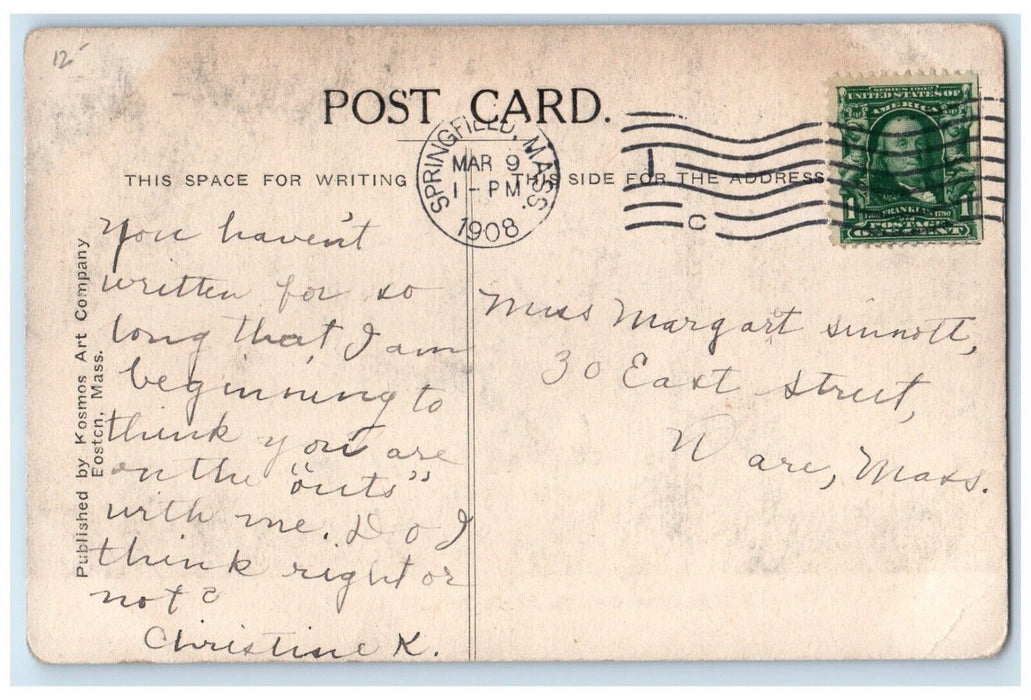 12
POST CARD.
SPRINGFIELD, MASS.
MAR 9
1-PM
1908
1
C
SERIES 1902
UNITED STATES OF
AMERICA
1 FRANKLIN 1790 1
POSTAGE
ONE CENT
THIS SPACE FOR WRITING
THIS SIDE FOR THE ADDRESS
Published by Kosmos Art Company
Boston, Mass.
You haven't
written for so
long that I am
beginning to
think you are
on the "outs"
with me. Do I
think right or
not?
Christine K.
Miss Margart Sinnott,
30 East Street,
Ware, Mass.